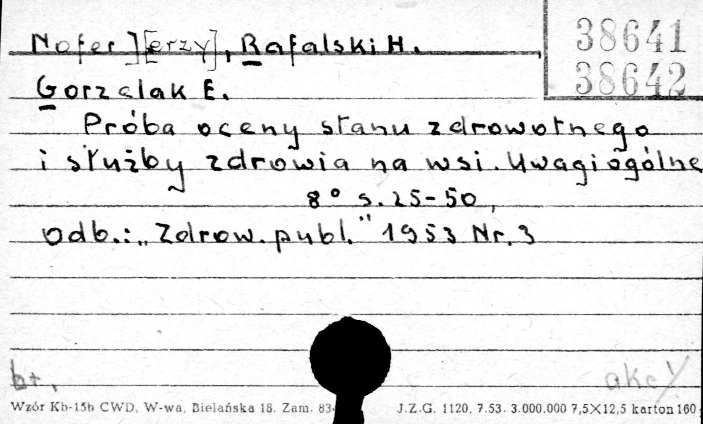 38641
38642
Nofer J[erzy], Rafalski H.
Gorzelak E.
Próba oceny stanu zdrowotnego
i służby zdrowia na wsi. Uwagi ogólne
8° s. 25-50,
odb.: „Zdrow. publ.” 1953 Nr. 3
bt.
akc
Wzór Kb-15b CWD, W-wa, Bielańska 18. Zam. 83
J.Z.G. 1120, 7.53. 3.000.000 7,5×12,5 karton 160